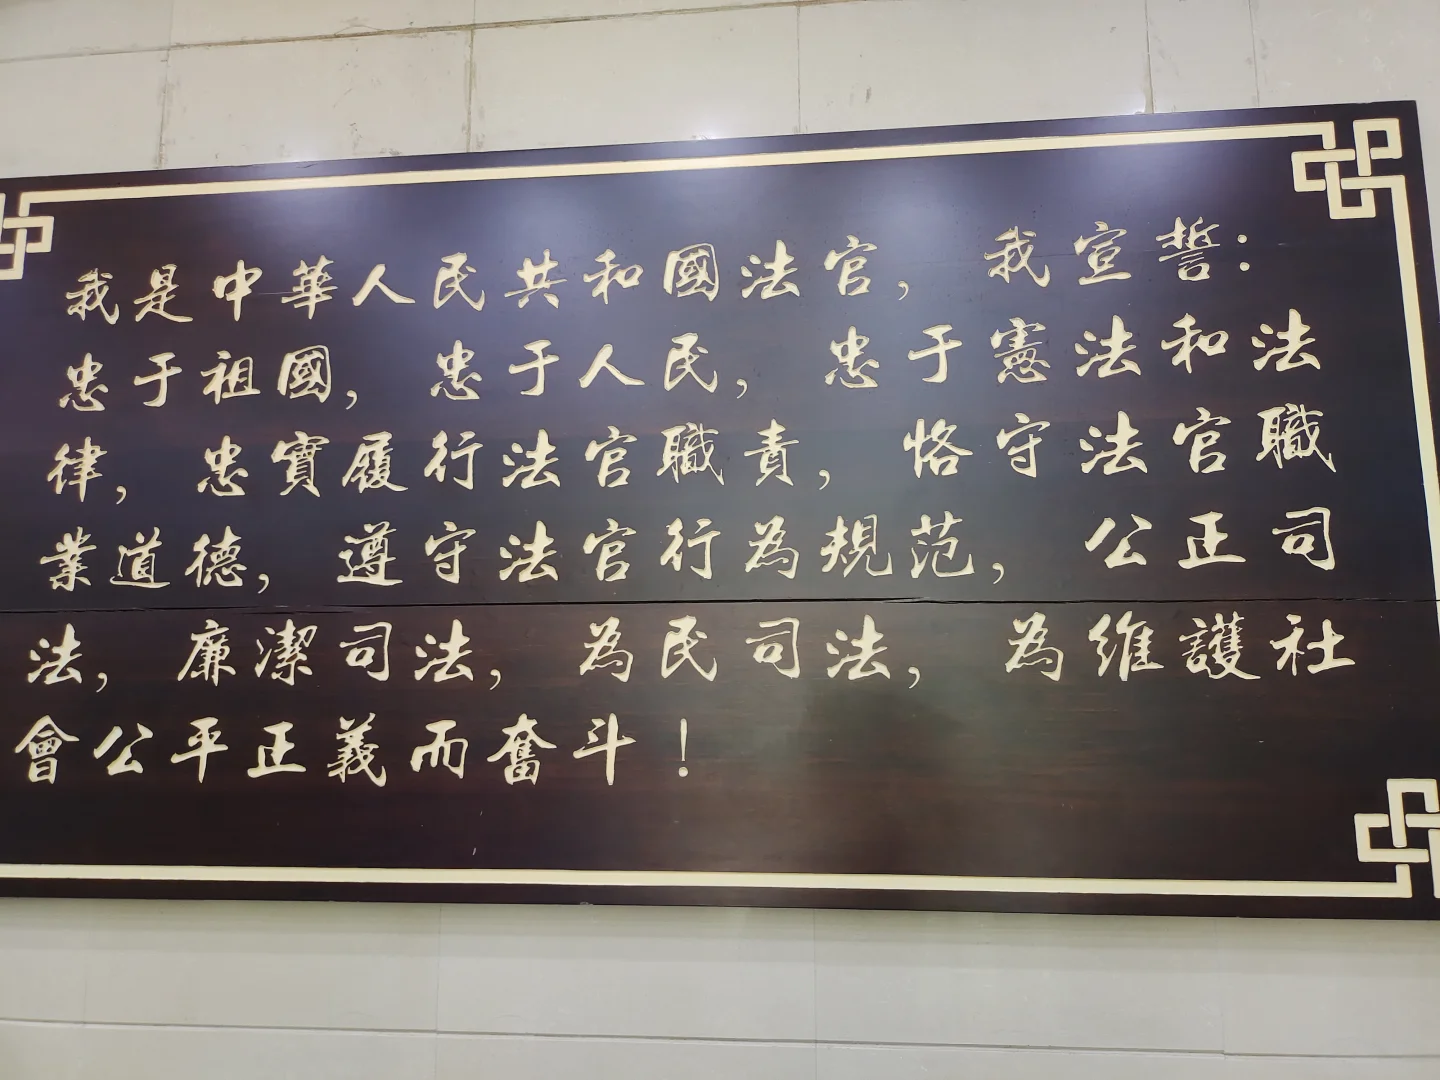 我是中華人民共和國法官，我宣誓：
忠于祖國，忠于人民，忠于憲法和法
律，忠實履行法官職責，恪守法官職
業道德，遵守法官行為規范，公正司
法，廉潔司法，為民司法，為維護社
會公平正義而奮斗！